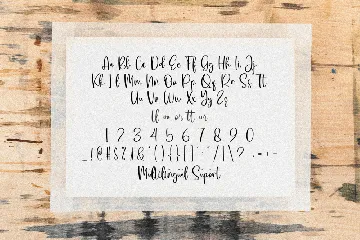 Aa Bb Cc Dd Ee Ff Gg Hh Ii Jj
Kk Ll Mm Nn Oo Pp Qq Rr Ss Tt
Uu Vv Ww Xx Yy Zz
1 2 3 4 5 6 7 8 9 0
Multilingual Suport